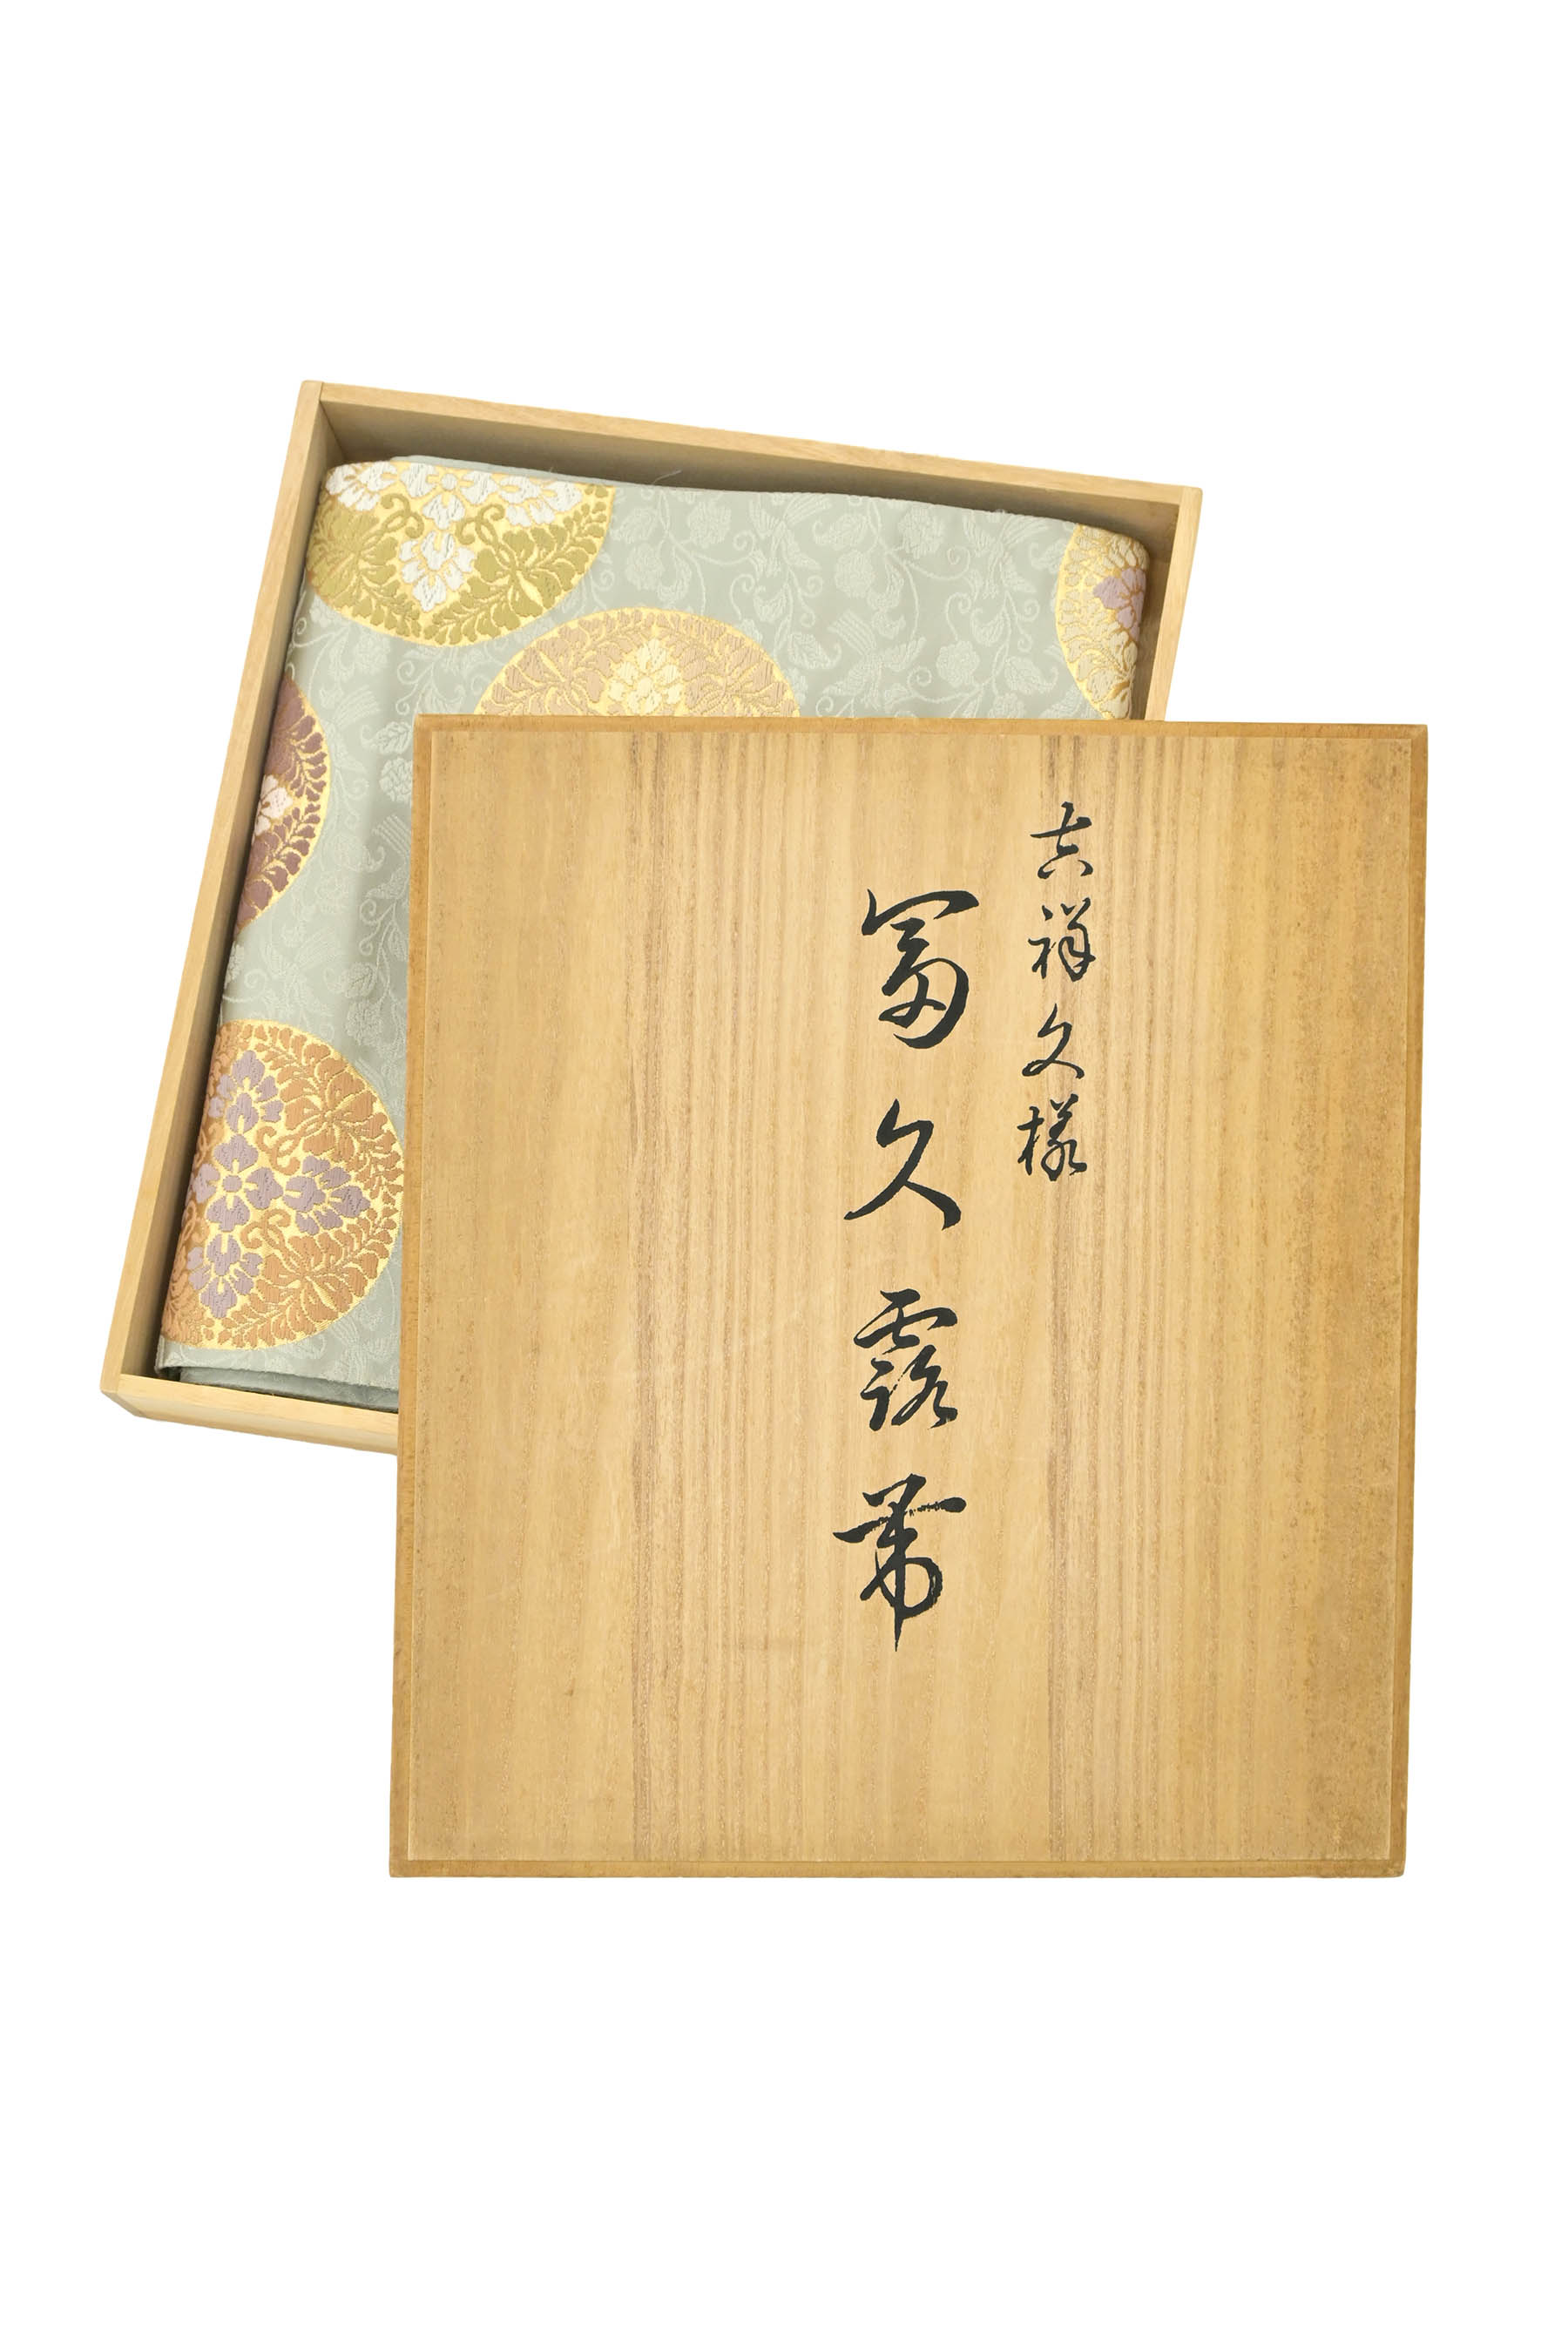 吉祥文様
冨久露帯